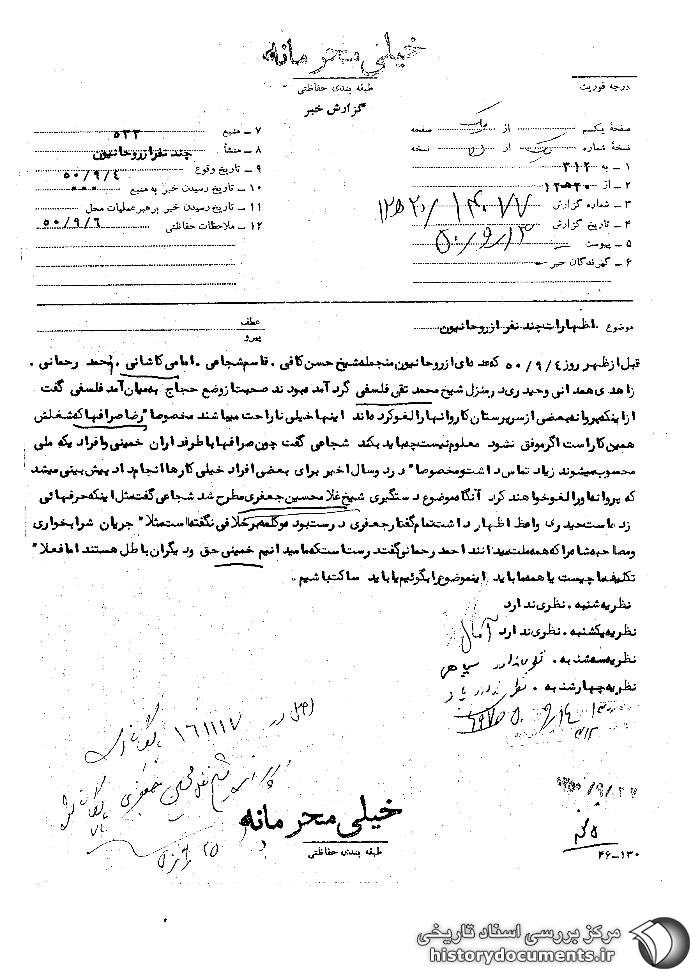 خیلی محرمانه
طبقه بندی حفاظتی
گزارش خبر
درجه فوریت
صفحهٔ یکم از یک صفحه
نسخهٔ شماره یک از نسخه
۱ – به ۳۱۲
۲ – از ۲۰ه۱۲
۳ – شماره گزارش ۲۰ه۱۲/۱۴۰۷۷
۴ – تاریخ گزارش ۵۰/۹/۱۳
۵ – پیوست
۶ – گیرندگان خبر
۷ – منبع ۵۳۳
۸ – منشأ چند نفر از روحانیون
۹ – تاریخ وقوع ۵۰/۹/۴
۱۰ – تاریخ رسیدن خبر به منبع ۰۰۰
۱۱ – تاریخ رسیدن خبر برهبر عملیات محل
۱۲ – ملاحظات حفاظتی ۵۰/۹/۶
موضوع : اظهارات چند نفر از روحانیون
عطف
پیرو
قبل از ظهر روز ۵۰/۹/۴ که عده‌ای از روحانیون منجمله شیخ حسن کافی . قاسم شجاعی . امامی کاشانی . احمد رحمانی .
زاهدی همدانی و حیدری در منزل شیخ محمد تقی فلسفی گرد آمد بودند صحبت از وضع حجاج به میان آمد فلسفی گفت
از اینکه پروانه بعضی از سرپرستان کاروانها را لغو کرده‌اند اینها خیلی ناراحت میباشند مخصوصا" رضا صرافها که شغلش
همین کار است اگر موفق نشود معلوم نیست چه باید بکند شجاعی گفت چون صرافها با طرفداران خمینی و افرادیکه ملی
محسوب میشوند زیاد تماس داشت و مخصوصا" در دو سال اخیر برای بعضی افراد خیلی کارها انجام داد پیش بینی میشد
که پروانه او را لغو خواهند کرد آنگاه موضوع دستگیری شیخ غلامحسین جعفری مطرح شد شجاعی گفت مثل اینکه حرفهائی
زده است حیدری واعظ اظهار داشت تمام گفتار جعفری درست بوده و کلمه بر خلافی نگفته است مثلا" جریان شرابخواری
و مصاحبه شاه را که همه ملت میدانند احمد رحمانی گفت درست است که ما میدانیم خمینی حق و دیگران باطل هستند اما فعلا"
تکلیف ما چیست یا همه ما باید این موضوع را بگوئیم یا باید ساکت باشیم .
نظریه شنبه . نظری ندارد
نظریه یکشنبه . نظری ندارد
نظریه سه‌شنبه . نظری ندارد
نظریه چهارشنبه . نظری ندارد
۱۶۱۱۱۷
خیلی محرمانه
طبقه بندی حفاظتی
۴۶–۱۳۰
مرکز بررسی اسناد تاریخی
historydocuments.ir